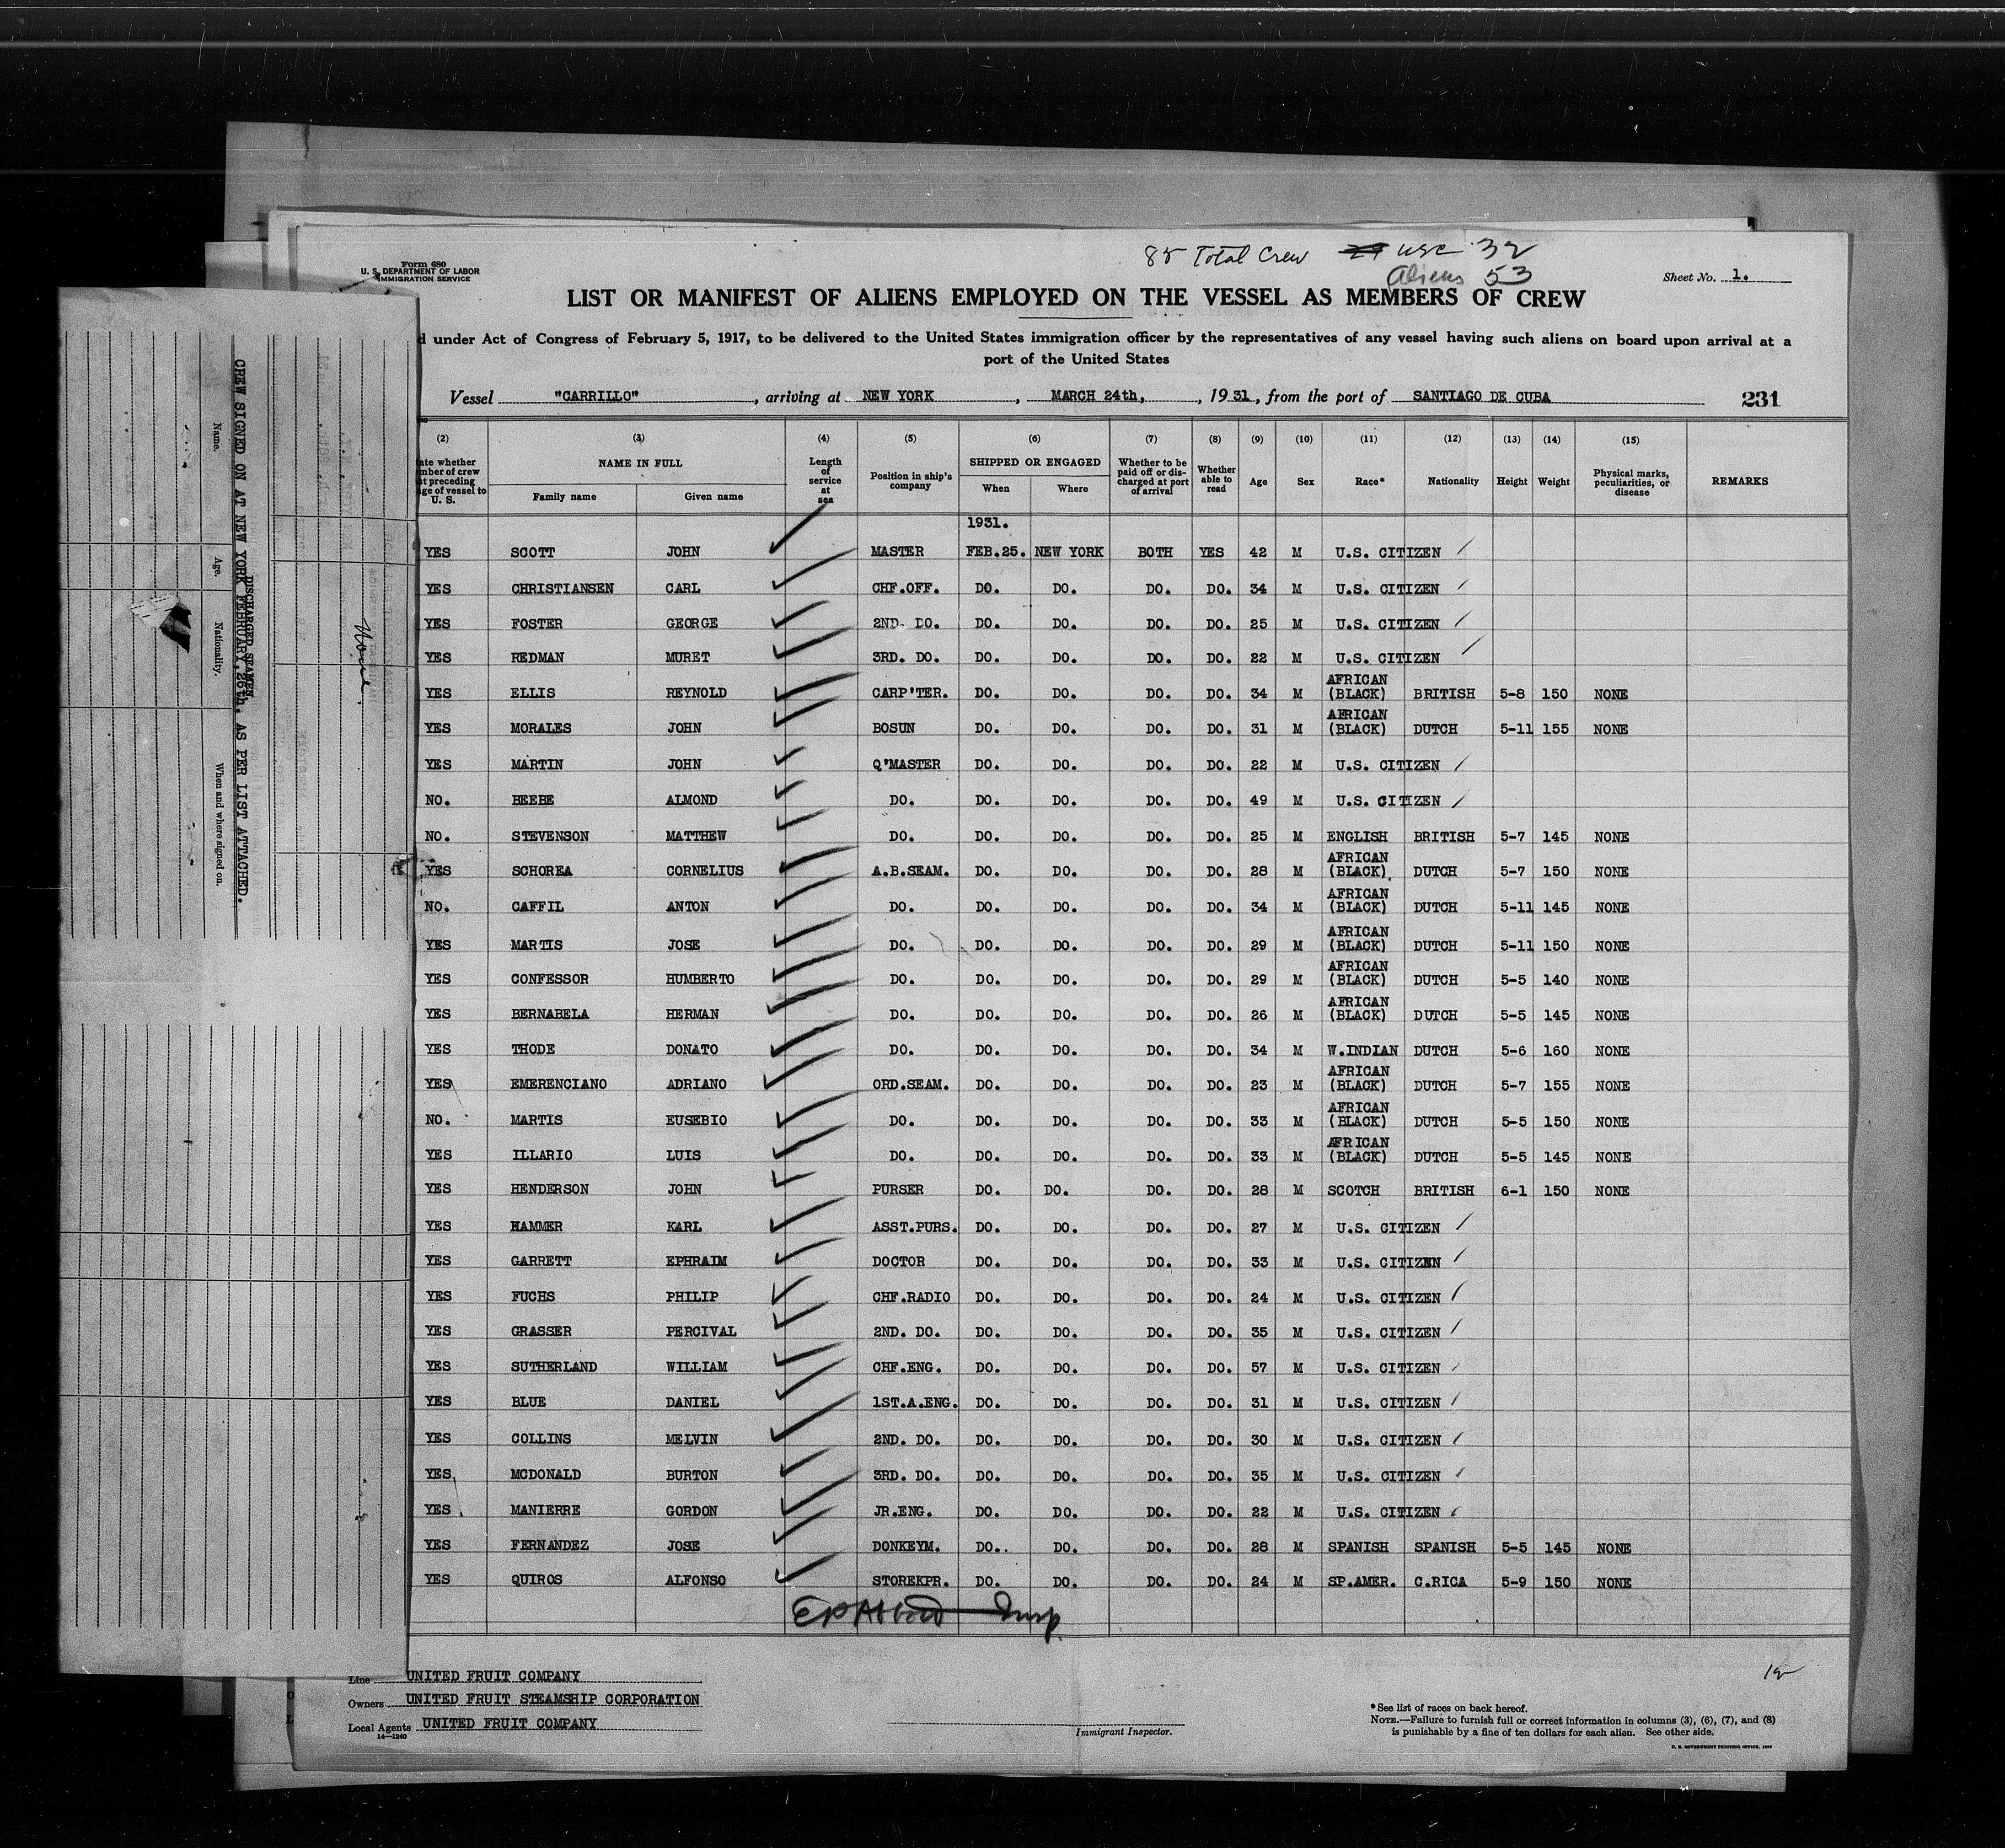 85 Total Crew 29 USC 32
Aliens 53
Form 680
U. S. DEPARTMENT OF LABOR
IMMIGRATION SERVICE
Sheet No. 1.
LIST OR MANIFEST OF ALIENS EMPLOYED ON THE VESSEL AS MEMBERS OF CREW
under Act of Congress of February 5, 1917, to be delivered to the United States immigration officer by the representatives of any vessel having such aliens on board upon arrival at a
port of the United States
Vessel "CARRILLO", arriving at NEW YORK, MARCH 24th, 1931, from the port of SANTIAGO DE CUBA 231
(2) (3) (4) (5) (6) (7) (8) (9) (10) (11) (12) (13) (14) (15)
ate whether
mber of crew
t preceding
ge of vessel to
U. S.
NAME IN FULL
Family name Given name
Length
of
service
at
sea
Position in ship's
company
SHIPPED OR ENGAGED
When Where
Whether to be
paid off or dis-
charged at port
of arrival
Whether
able to
read
Age Sex Race* Nationality Height Weight
Physical marks,
peculiarities, or
disease
REMARKS
1931.
YES SCOTT JOHN MASTER FEB.25. NEW YORK BOTH YES 42 M U.S. CITIZEN
YES CHRISTIANSEN CARL CHF.OFF. DO. DO. DO. DO. 34 M U.S. CITIZEN
YES FOSTER GEORGE 2ND. DO. DO. DO. DO. DO. 25 M U.S. CITIZEN
YES REDMAN MURET 3RD. DO. DO. DO. DO. DO. 22 M U.S. CITIZEN
YES ELLIS REYNOLD CARP'TER. DO. DO. DO. DO. 34 M AFRICAN (BLACK) BRITISH 5-8 150 NONE
YES MORALES JOHN BOSUN DO. DO. DO. DO. 31 M AFRICAN (BLACK) DUTCH 5-11 155 NONE
YES MARTIN JOHN Q'MASTER DO. DO. DO. DO. 22 M U.S. CITIZEN
NO. BEEBE ALMOND DO. DO. DO. DO. DO. 49 M U.S. CITIZEN
NO. STEVENSON MATTHEW DO. DO. DO. DO. DO. 25 M ENGLISH BRITISH 5-7 145 NONE
YES SCHOREA CORNELIUS A.B.SEAM. DO. DO. DO. DO. 28 M AFRICAN (BLACK) DUTCH 5-7 150 NONE
NO. CAFFIL ANTON DO. DO. DO. DO. DO. 34 M AFRICAN (BLACK) DUTCH 5-11 145 NONE
YES MARTIS JOSE DO. DO. DO. DO. DO. 29 M AFRICAN (BLACK) DUTCH 5-11 150 NONE
YES CONFESSOR HUMBERTO DO. DO. DO. DO. DO. 29 M AFRICAN (BLACK) DUTCH 5-5 140 NONE
YES BERNABELA HERMAN DO. DO. DO. DO. DO. 26 M AFRICAN (BLACK) DUTCH 5-5 145 NONE
YES THODE DONATO DO. DO. DO. DO. DO. 34 M W.INDIAN DUTCH 5-6 160 NONE
YES EMERENCIANO ADRIANO ORD.SEAM. DO. DO. DO. DO. 23 M AFRICAN (BLACK) DUTCH 5-7 155 NONE
NO. MARTIS EUSEBIO DO. DO. DO. DO. DO. 33 M AFRICAN (BLACK) DUTCH 5-5 150 NONE
YES ILLARIO LUIS DO. DO. DO. DO. DO. 33 M AFRICAN (BLACK) DUTCH 5-5 145 NONE
YES HENDERSON JOHN PURSER DO. DO. DO. DO. 28 M SCOTCH BRITISH 6-1 150 NONE
YES HAMMER KARL ASST.PURS. DO. DO. DO. DO. 27 M U.S. CITIZEN
YES GARRETT EPHRAIM DOCTOR DO. DO. DO. DO. 33 M U.S. CITIZEN
YES FUCHS PHILIP CHF.RADIO DO. DO. DO. DO. 24 M U.S. CITIZEN
YES GRASSER PERCIVAL 2ND. DO. DO. DO. DO. DO. 35 M U.S. CITIZEN
YES SUTHERLAND WILLIAM CHF.ENG. DO. DO. DO. DO. 57 M U.S. CITIZEN
YES BLUE DANIEL 1ST.A.ENG. DO. DO. DO. DO. 31 M U.S. CITIZEN
YES COLLINS MELVIN 2ND. DO. DO. DO. DO. DO. 30 M U.S. CITIZEN
YES MCDONALD BURTON 3RD. DO. DO. DO. DO. DO. 35 M U.S. CITIZEN
YES MANIERRE GORDON JR.ENG. DO. DO. DO. DO. 22 M U.S. CITIZEN
YES FERNANDEZ JOSE DONKEYM. DO.. DO. DO. DO. 28 M SPANISH SPANISH 5-5 145 NONE
YES QUIROS ALFONSO STOREKPR. DO. DO. DO. DO. 24 M SP.AMER. C.RICA 5-9 150 NONE
Insp.
Line UNITED FRUIT COMPANY
Owners UNITED FRUIT STEAMSHIP CORPORATION
Local Agents UNITED FRUIT COMPANY
14—1240
Immigrant Inspector.
*See list of races on back hereof.
NOTE.—Failure to furnish full or correct information in columns (3), (6), (7), and (8)
is punishable by a fine of ten dollars for each alien. See other side.
U. S. GOVERNMENT PRINTING OFFICE
None
DISCHARGED SEAMEN
CREW SIGNED ON AT NEW YORK FEBRUARY,26th. AS PER LIST ATTACHED.
Name. Age. Nationality. When and where signed on.